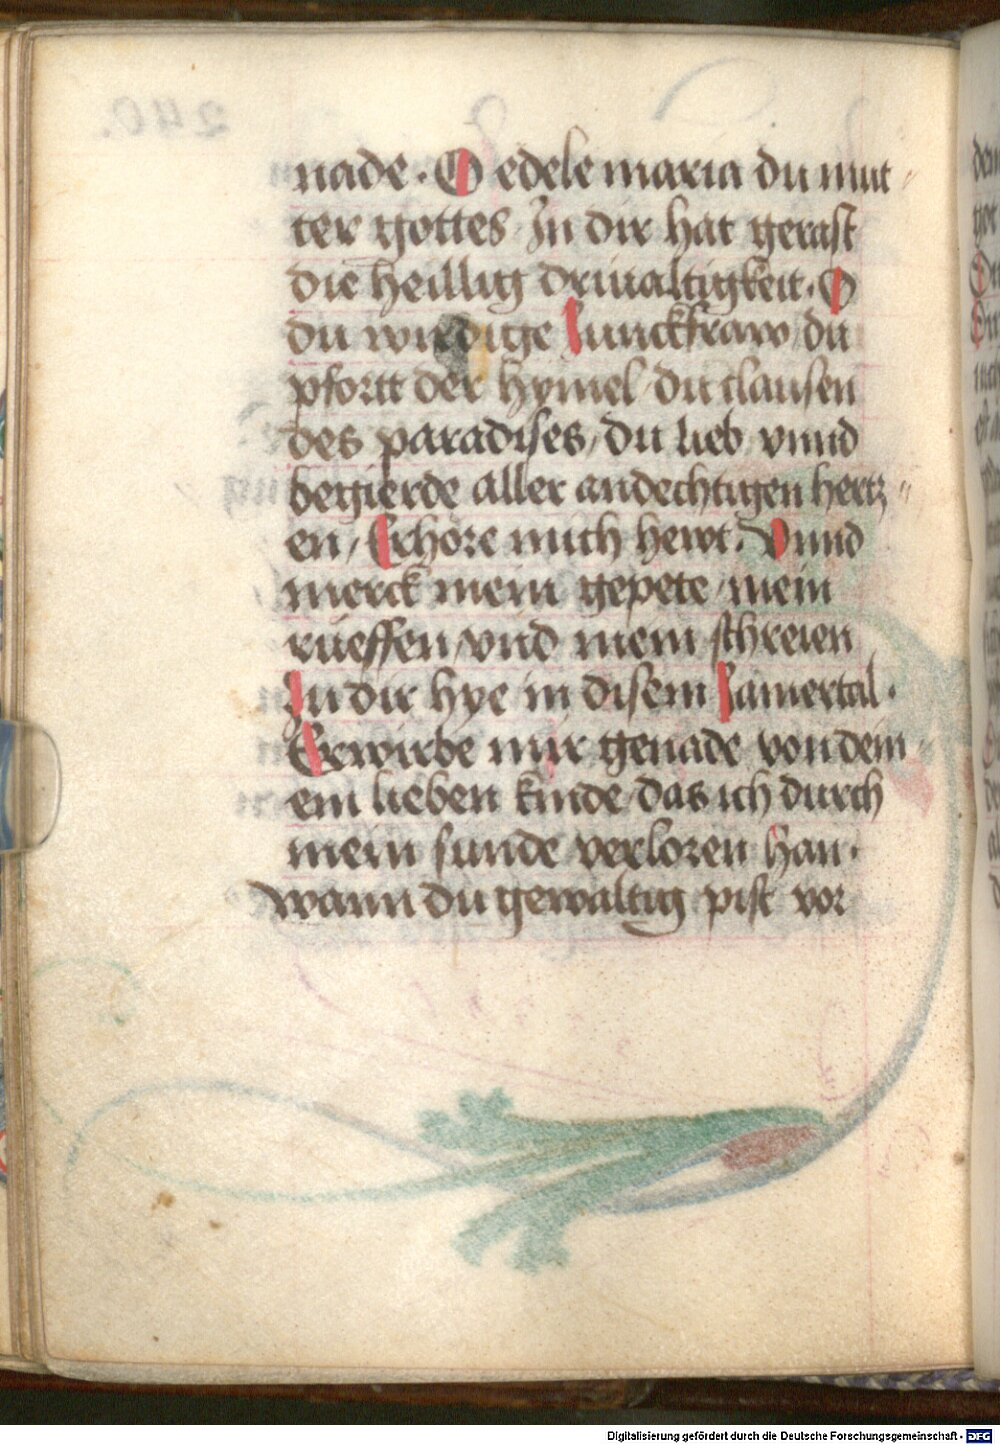 nade · O edele maria du mut-
ter gottes In dir hat gerast
die heillig driualtigkeit. O
du wirdige Iunckfraw / du
pfortt der hymel / du clausen
des paradises / du lieb vnnd
begierde aller andechtigen hertz-
en / Erhöre mich hewt. Vnnd
merck mein gepete / mein
rüeffen / vnd mein schreien
In dir hye in disem Iamertal ·
Erwirbe mir genade von dein-
em lieben kinde / das ich durch
mein sunde verloren han ·
wann du gewaltig pist vor
Digitalisierung gefördert durch die Deutsche Forschungsgemeinschaft - DFG